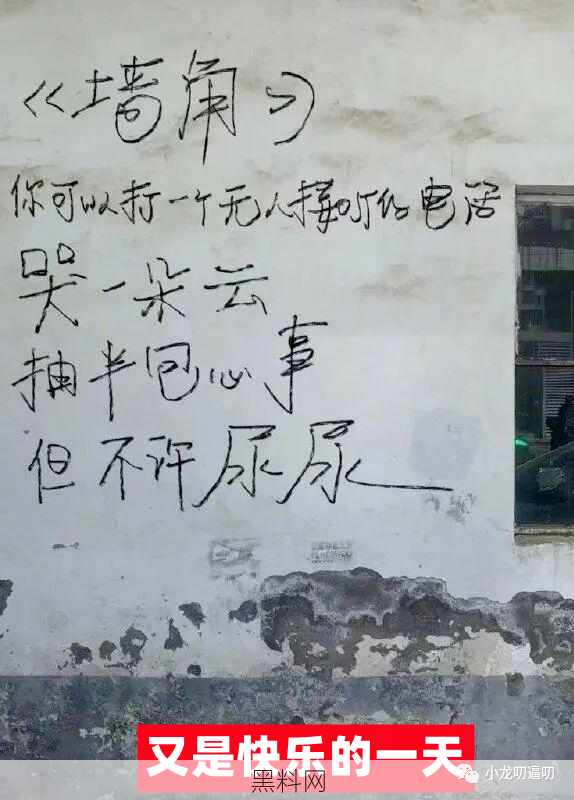 《墙角》
你可以打一个无人接听的电话
哭一朵云
抽半包心事
但不许尿尿
又是快乐的一天
小龙叨逼叨
黑料网